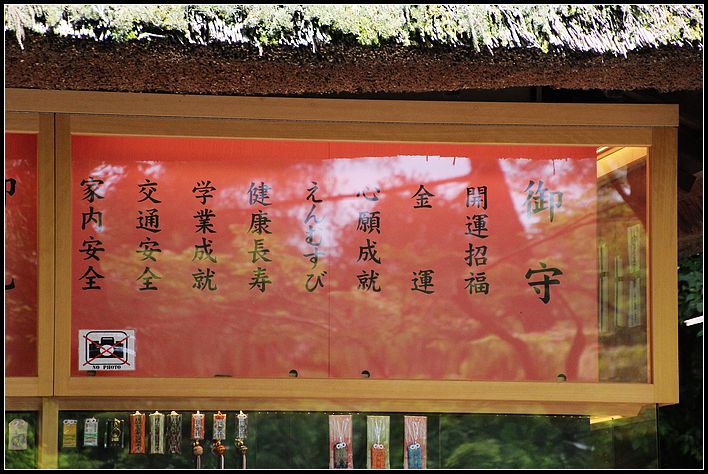 御守
開運招福
金運
心願成就
えんむすび
健康長寿
学業成就
交通安全
家内安全
NO PHOTO